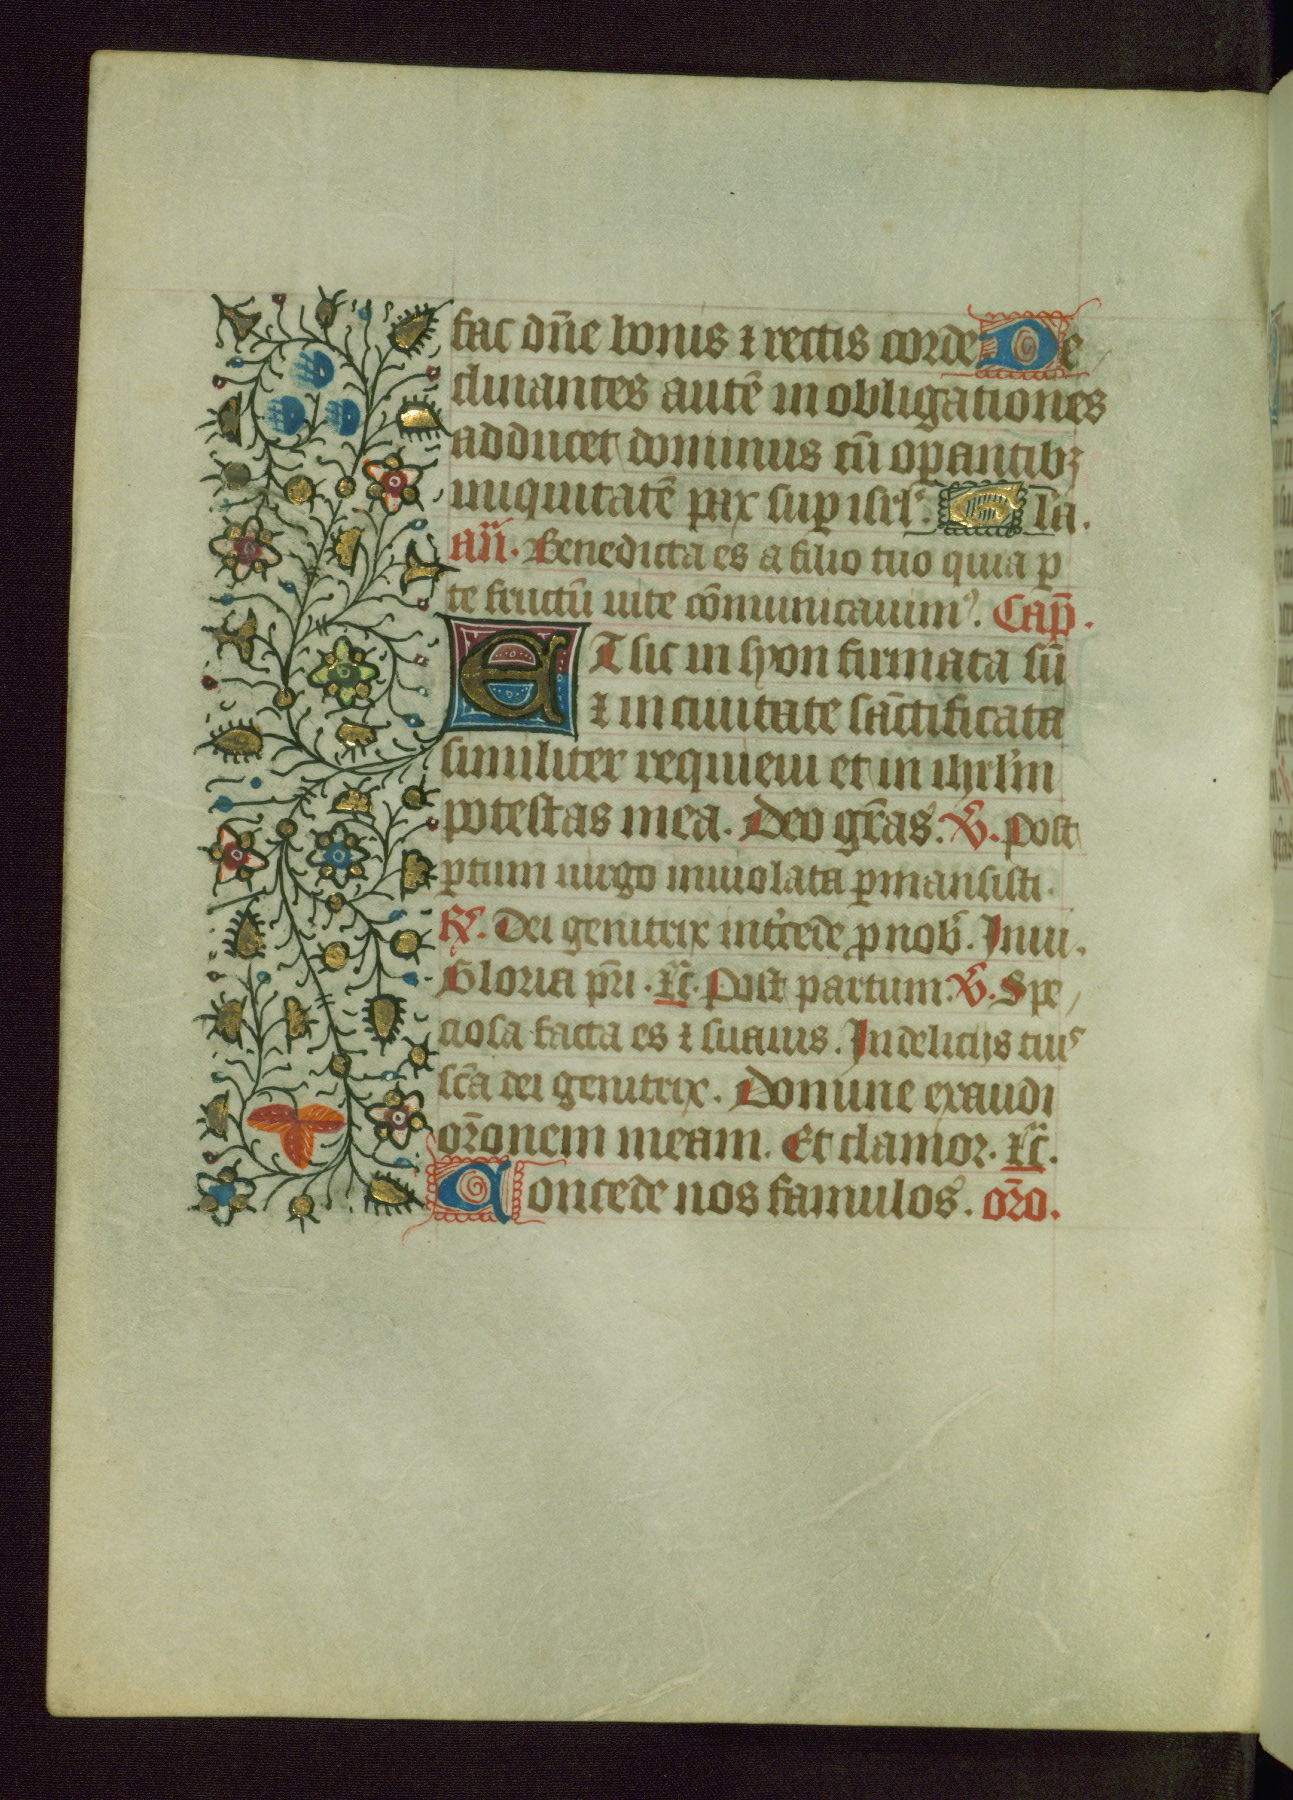 fac dn̄e bonis ⁊ rectis corde De
clinantes autē in obligationes
adducet dominus cū oꝑantibꝫ
iniquitatē pax suꝑ isrl̓. Gl̓a.
an̄. Benedicta es a filio tuo quia ꝑ
te fructū uite cōmunicauimꝰ. Cap̄.
ET sic in syon firmata sū
⁊ in ciuitate sāctificata
similiter requieui et in ihrl̓m
potestas mea. Deo gr̄as. ℣. Post
ꝑtum uirgo inuiolata ꝑmansisti.
℟. Dei genitrix int̓cede ꝓ nob̓. Inui.
Gloria pr̄i. ⁊c̄. Post partum. ℣. Spe
ciosa facta es ⁊ suauis. In delicijs tuis
sc̄a dei genitrix. Domine exaudi
or̄onem meam. Et clamor. ⁊c̄.
Concede nos famulos. or̄o.